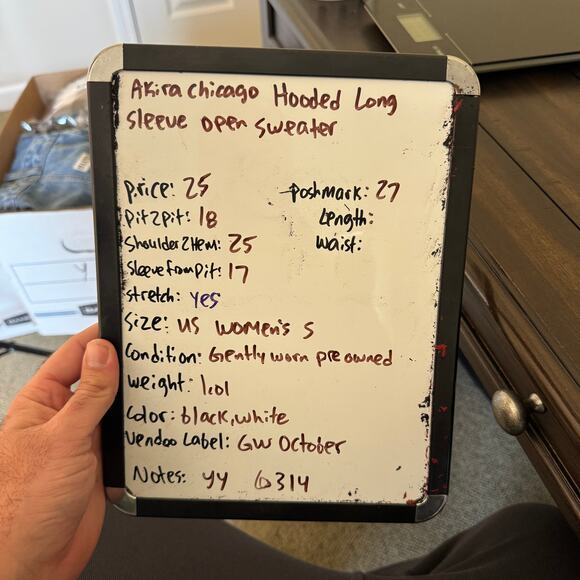 Akira chicago Hooded Long
sleeve open sweater
price: 25
poshmark: 27
pit2pit: 18
Length:
Shoulder2Hem: 25
waist:
SleevefromPit: 17
stretch: yes
Size: US women's S
Condition: Gently worn pre owned
weight: 1.01
Color: black, white
Vendoo Label: GW October
Notes: yy 6314